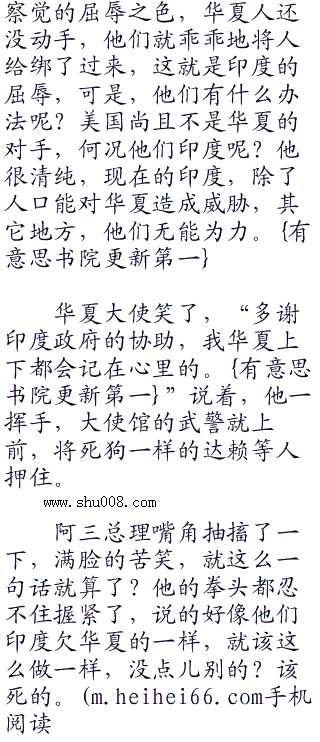 察觉的屈辱之色，华夏人还
没动手，他们就乖乖地将人
给绑了过来，这就是印度的
屈辱，可是，他们有什么办
法呢？美国尚且不是华夏的
对手，何况他们印度呢？他
很清纯，现在的印度，除了
人口能对华夏造成威胁，其
它地方，他们无能为力。{有
意思书院更新第一}
华夏大使笑了，“多谢
印度政府的协助，我华夏上
下都会记在心里的。{有意思
书院更新第一}”说着，他一
挥手，大使馆的武警就上
前，将死狗一样的达赖等人
押住。
www.shu008.com
阿三总理嘴角抽搐了一
下，满脸的苦笑，就这么一
句话就算了？他的拳头都忍
不住握紧了，说的好像他们
印度欠华夏的一样，就该这
么做一样，没点儿别的？该
死的。(m.heihei66.com手机
阅读